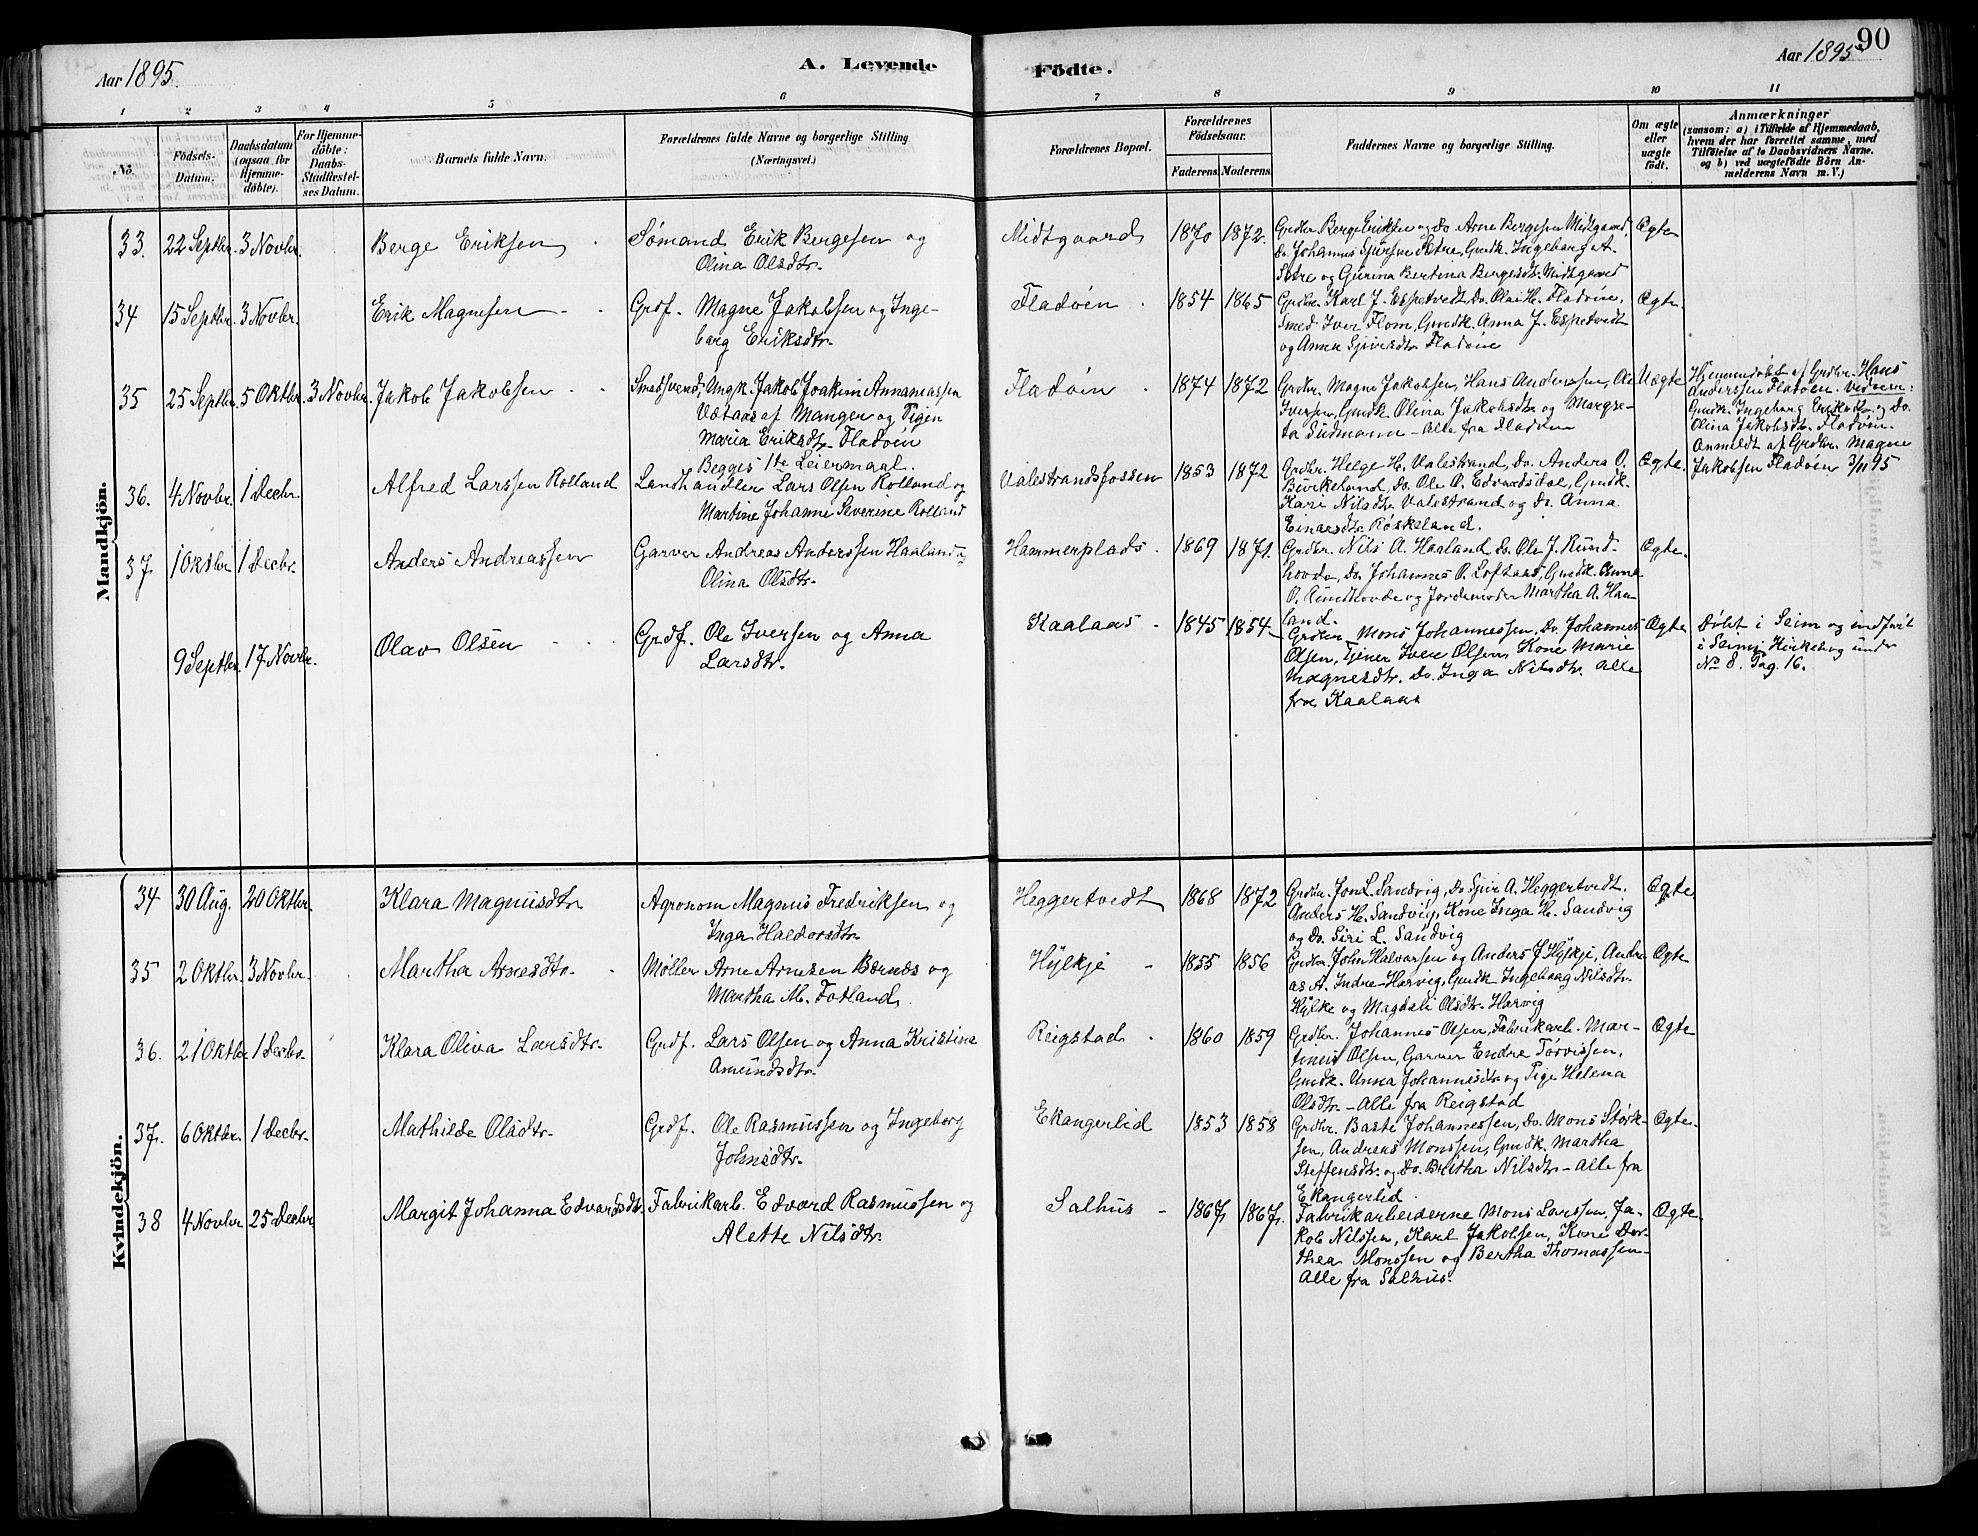 Aar 1895.
A. Levende
Födte.
Aar 1895
90
1 2 3 4 5 6 7 8 9 10 11
No.
Födsels-
Datum.
Daabsdatum
(ogsaa for
Hjemme-
döbte).
For Hjemme-
döbte:
Daabs-
Stadfæstel-
ses Datum.
Barnets fulde Navn.
Forældrenes fulde Navne og borgerlige Stilling.
(Næringsvei.)
Forældrenes Bopæl.
Forældrenes
Födselsaar.
Faderens. Moderens.
Faddernes Navne og borgerlige Stilling.
Om ægte
eller
uægte
født.
Anmærkninger
(saasom: a) i Tilfælde af Hjemmedaab,
hvem der har forrettet samme, med
Tilföielse af to Daabsvidners Navne.
og b) ved uægtefödte Börn An-
melderens Navn m. V.)
Mandkjön.
33. 22 Septbr. 3 Novbr. Berge Eriksen
Sømand Erik Bergesen og
Olina Olsdtr.
Midtgaard 1870 1872.
Grdbr. Berge Eriksen og Do. Arne Bergesen Midtgaard,
Do. Johannes Sjursen Sætre, Gmdk. Ingeborg A.
Sætre og Gurina Bertina Bergesdtr. Midtgaard
Ægte
34 15 Septbr. 3 Novbr. Erik Magnesen
Grdf. Magne Jakobsen og Inge-
borg Eriksdtr.
Fladöen 1854 1865
Grdbr. Karl J. Espetvedt, Do. Olai H. Fladöen,
Smed Iver Flom, Gmdk. Anna J. Espetvedt
og Anna Sjursdtr. Fladöen
Ægte
35 25 Septbr. 5 Oktbr. 3 Novbr. Jakob Jakobsen
Smedsvend, Ungk. Jakob Joakim Annaneassen
Vetaas af Manger og Pigen
Maria Eriksdtr. Fladöen
Begges 1te Leiermaal.
Fladöen 1874 1872
Grdbr. Magne Jakobsen, Hans Anderssen, Ole
Iversen, Gmdk. Olina Jakobsdtr. og Margre-
ta Sudmann - Alle fra Fladöen
Uægte
Hjemmedöbt af Grdbr. Hans
Anderssen Fladöen. Vidner:
Gmdk. Ingeborg Eriksdtr. og Do.
Olina Jakobsdtr. Fladöen.
Anmeldt af Grdbr. Magne
Jakobsen Fladöen 3/11 95
36. 4 Novbr. 1 Decbr. Alfred Larssen Rolland
Landhandler Lars Olsen Rolland og
Martine Johanne Severine Rolland
Valestrandsfossen 1853 1872
Grdbr. Helge H. Valestrand, Do. Anders O.
Birkeland, Do. Ole O. Edvardsdal, Gmdk.
Kari Nilsdtr. Valestrand og Do. Anna
Einarsdtr. Røskeland.
Ægte.
37. 1 Oktbr. 1 Decbr. Anders Andreassen
Garver Andreas Anderssen Haaland og
Olina Olsdtr.
Hammerplads 1869 1871.
Grdbr. Nils A. Haaland, Do. Ole J. Rund-
hovde, Do. Johannes O. Loftaas, Gmdk. Anna
O. Rundhovde og Jordemoder Martha A. Haa-
land.
Ægte.
9 Septbr. 17 Novbr. Olav Olsen
Grdf. Ole Iversen og Anna
Larsdtr.
Kaalaas 1845 1854
Grdbr. Mons Johannessen, Do. Johannes
Olsen, Tjener Iver Olsen, Kone Marie
Magnesdtr. Do. Inga Nilsdtr. Alle
fra Kaalaas
Ægte
Döbt i Seim og indført
i Seims Kirkebog under
No 8. Pag. 16.
Kvindekjön.
34 30 Aug. 20 Oktbr. Klara Magnusdtr.
Agronom Magnus Fredriksen og
Inger Haldorsdtr.
Heggertvedt 1868 1872
Grdbr. Jon L. Sandvig, Do. Sjur A. Heggertvedt,
Anders H. Sandvig, Kone Inga H. Sandvig
og Do. Siri L. Sandvig
Ægte
35 2 Oktbr. 3 Novbr. Martha Arnesdtr.
Møller Arne Arnesen Børnæs og
Martha M. Fotland.
Hylkje 1855 1856
Grdbr. John Halvorsen og Anders J. Hylkje, Andre-
as A. Indre-Harvig, Gmdk. Ingeborg Nilsdtr.
Hylke og Magdali Olsdtr. Harvig
Ægte
36. 21 Oktbr. 1 Decbr. Klara Oliva Larsdtr.
Grdf. Lars Olsen og Anna Kristina
Amundsdtr.
Reigstad 1860 1859
Grdbr. Johannes Olsen, Fabrikarb. Mar-
tinus Olsen, Garver Endre Torvissen,
Gmdk. Anna Johannesdtr. og Pige Helena
Olsdtr. - Alle fra Reigstad
Ægte
37. 6 Oktbr. 1 Decbr. Mathilde Olsdtr.
Grdf. Ole Rasmussen og Ingeborg
Johnsdtr.
Ekangerlid 1853 1858
Grdbr. Baste Johannessen, Do. Mons Størk-
sen, Andreas Monssen, Gmdk. Martha
Steffensdtr. og Do. Britha Nilsdtr. - Alle fra
Ekangerlid.
Ægte.
38 4 Novbr. 25 Decbr. Margit Johanna Edvardsdtr.
Fabrikarb. Edvard Rasmussen og
Alette Nilsdtr.
Salhus 1867. 1867.
Fabrikarbeiderne Mons Larssen, Ja-
kob Nilssen, Karl Jakobsen, Kone Dor-
thea Monssen og Bertha Thomassen
Alle fra Salhus.
Ægte.